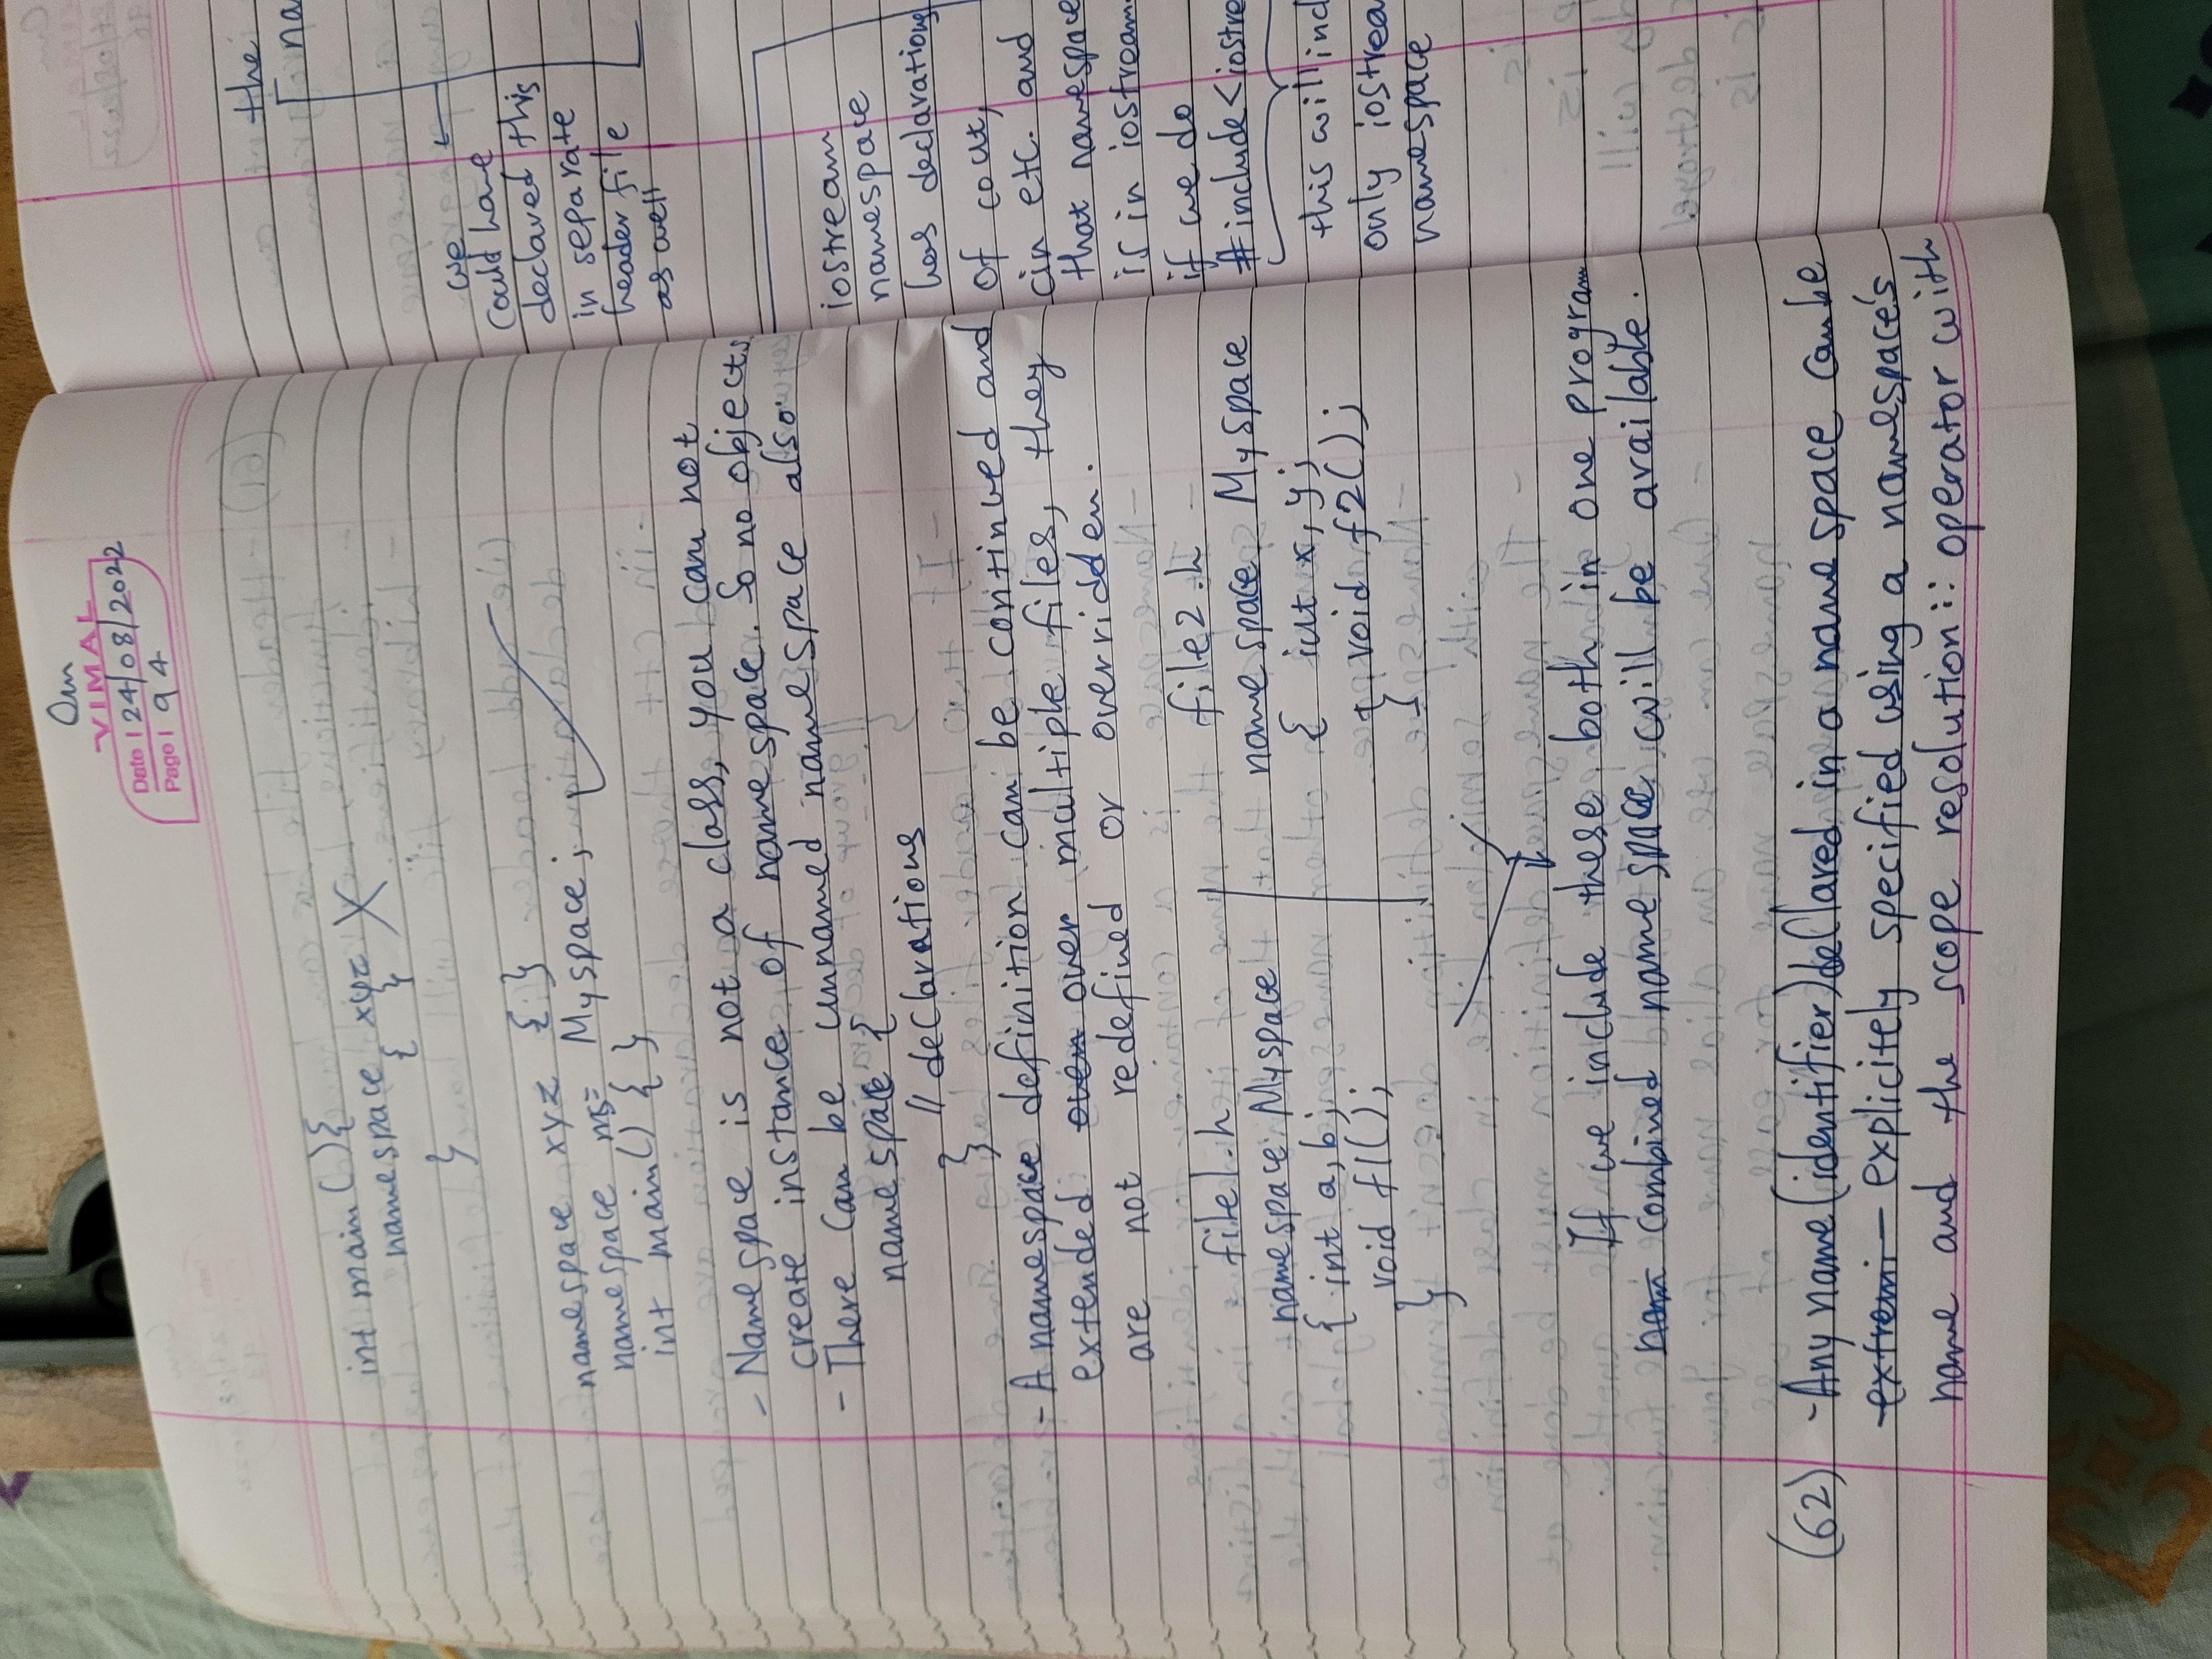 Om
VIMAL
Date 24/08/2022
Page 94
int main(){
namespace xyz
{ }
}
namespace xyz { }
namespace ms= Myspace;
int main() { }
- Namespace is not a class, you can not
create instance of namespace. So no objects.
- There can be unnamed namespace also
namespace {
// declarations
}
- A namespace definition can be continued and
extended even over multiple files, they
are not redefined or overridden.
file1.h
namespace Myspace
{ int a, b;
void f1();
}
file2.h
namespace Myspace
{ int x, y;
void f2();
}
If we include these both in one program
nam combined namespace will be available.
(62) - Any name (identifier) declared in a namespace can be
extremi explicitely specified using a namespace's
name and the scope resolution :: operator with
the
na
we
could have
declared this
in separate
header file
as well
iostream
namespace
has declarations
of cout,
cin etc. and
that namespace
is in iostream.
if we do
#include<iostre
this will incl
only iostrea
namespace